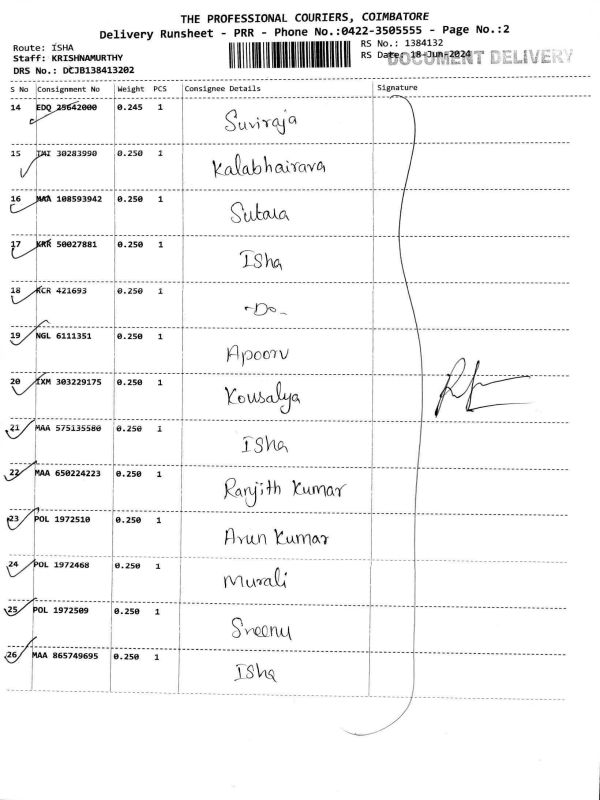 THE PROFESSIONAL COURIERS, COIMBATORE
Delivery Runsheet - PRR - Phone No.:0422-3505555 - Page No.:2
Route: ISHA
Staff: KRISHNAMURTHY
DRS No.: DCJB138413202
RS No.: 1384132
RS Date: 18-Jun-2024
DOCUMENT DELIVERY
S No Consignment No Weight PCS Consignee Details Signature
14 EDQ 25642000 0.245 1 Suviraja
15 TAI 30283990 0.250 1 Kalabhairava
16 MAA 108593942 0.250 1
17 KRR 50027881 0.250 1 Isha
18 KCR 421693 0.250 1 -Do-
19 NGL 6111351 0.250 1 Apoorv
20 IXM 303229175 0.250 1 Kousalya
21 MAA 575135580 0.250 1 Isha
22 MAA 650224223 0.250 1 Ranjith Kumar
23 POL 1972510 0.250 1 Arun Kumar
24 POL 1972468 0.250 1 Murali
25 POL 1972509 0.250 1 Sreenu
26 MAA 865749695 0.250 1 Isha